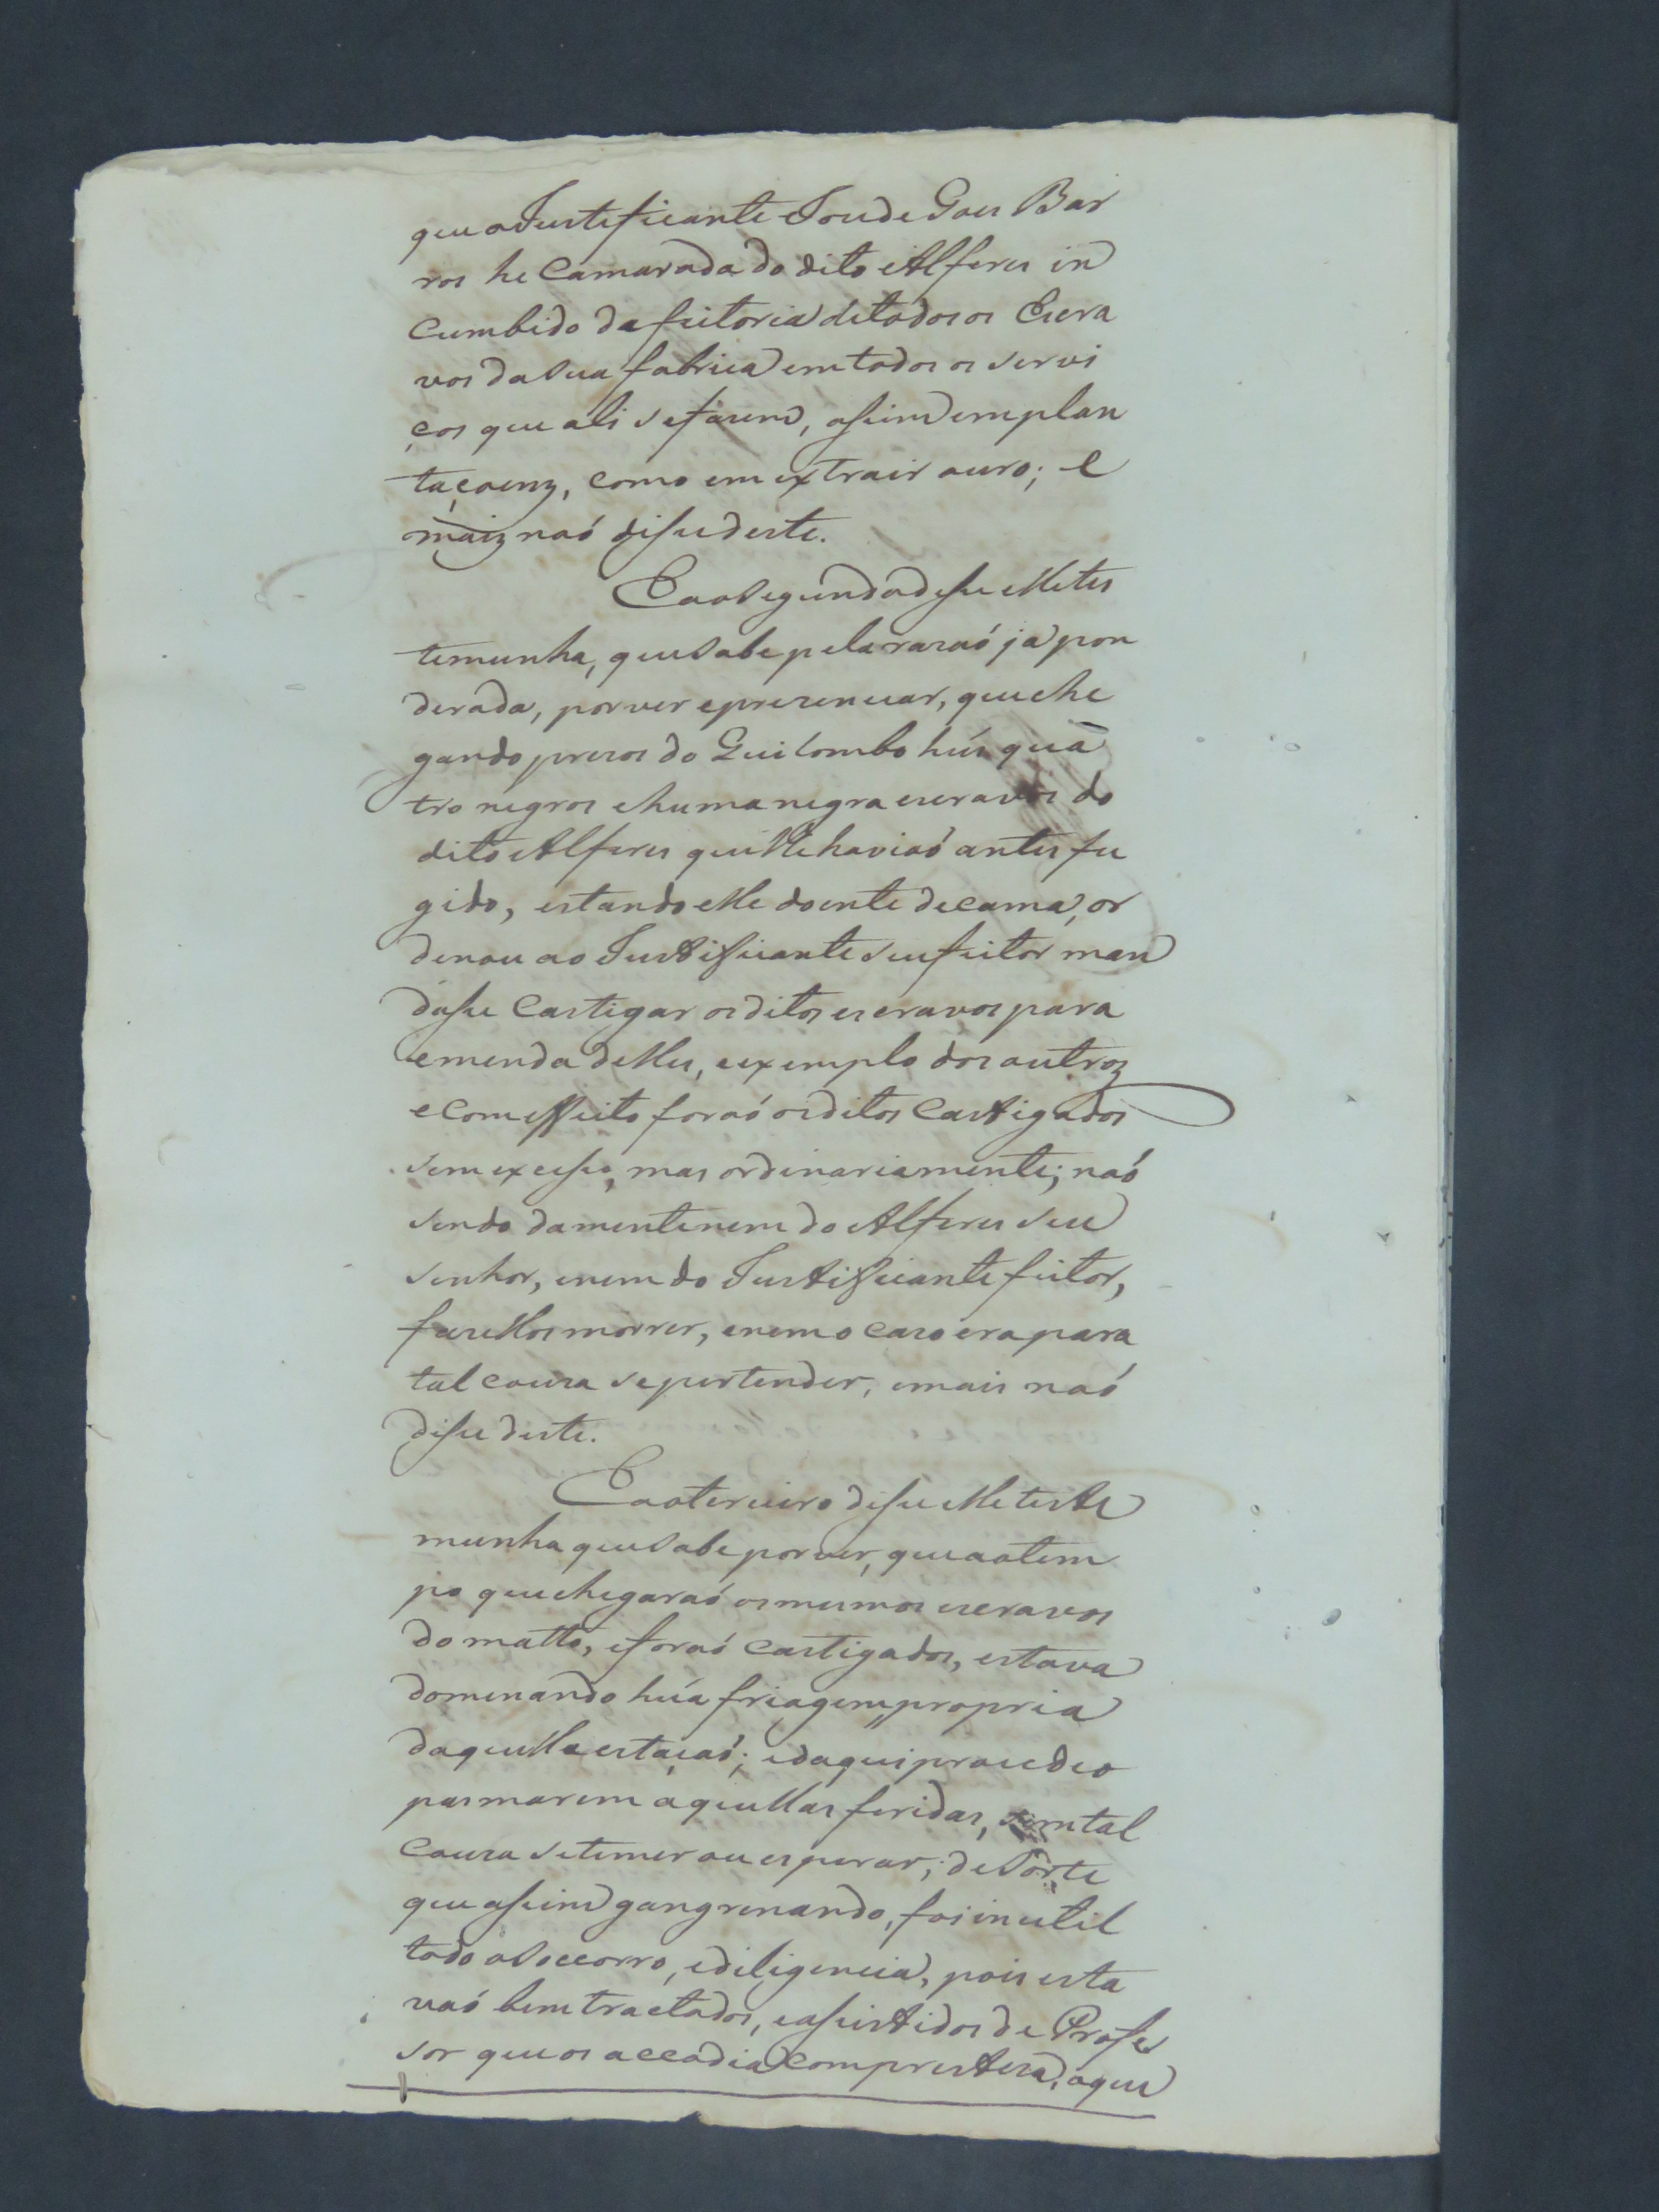 que o Justificante Jose de Goes Bar
ros he Camarada do dito Alferes in
cumbido da feitoria de todos os Escra
vos da sua fabrica em todos os servi
ços que ali se fazem, assim em plan
taçoenz, como em extrair ouro; e
maiz naó disse deste.
E ao segundo disse elle tes
temunha, que sabe pela razaó já pon
derada, por ver e prezenciar, que che
gando prezos do Quilombo hús quā
tro negros e huma negra escravos do
dito Alferes que lhe haviaó antes fu
gido, estando elle doente de cama, or
denou ao Justificante seu feitor man
dasse Castigar os ditos escravos para
emenda delles, e exemplo dos outroz
e com effeito foraó os ditos Castigados
sem excesso, mas ordinariamente; naó
sendo da mente nem do Alferes seu
senhor, e nem do Justificante feitor,
fazellos morrer, e nem o cazo era para
tal couza se pertender, e mais naó
disse deste.
E ao terceiro disse elle teste
munha que sabe por ver, que ao tem
po que chegaraó os mesmos escravos
do matto, e foraó Castigados, estava
domenando húa friagem propria
daquella estaçaó; e daqui procedeo
pasmarem aquellas feridas, sem tal
Couza se temer ou esperar; de sorte
que assim gangrenando, foi inutil
todo o soccorro, e diligencia, pois esta
vaó bem tractados, e assistidos de Profes
sor que os accodia com presteza, o que